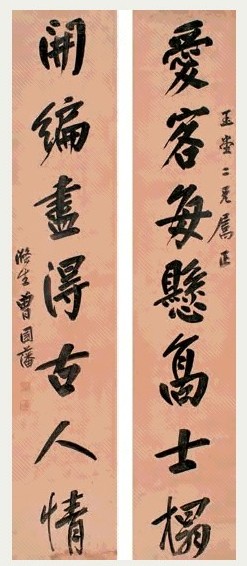 二兄屬正
愛客每懸高士榻
開編盡得古人情
滌生曾國藩